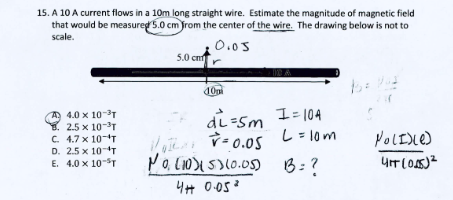 15. A 10 A current flows in a 10m long straight wire. Estimate the magnitude of magnetic field
that would be measured 5.0 cm from the center of the wire. The drawing below is not to
scale.
0.05
5.0 cm r
10 A
10m
A. 4.0 x 10⁻³T
B. 2.5 x 10⁻³T
C. 4.7 x 10⁻⁴T
D. 2.5 x 10⁻⁴T
E. 4.0 x 10⁻⁵T
dL = 5m I = 10A
r = 0.05 L = 10m
μ0 (10)(5)(0.05) B = ?
4π 0.05²
μ0(I)(l)
4π(0.05)²